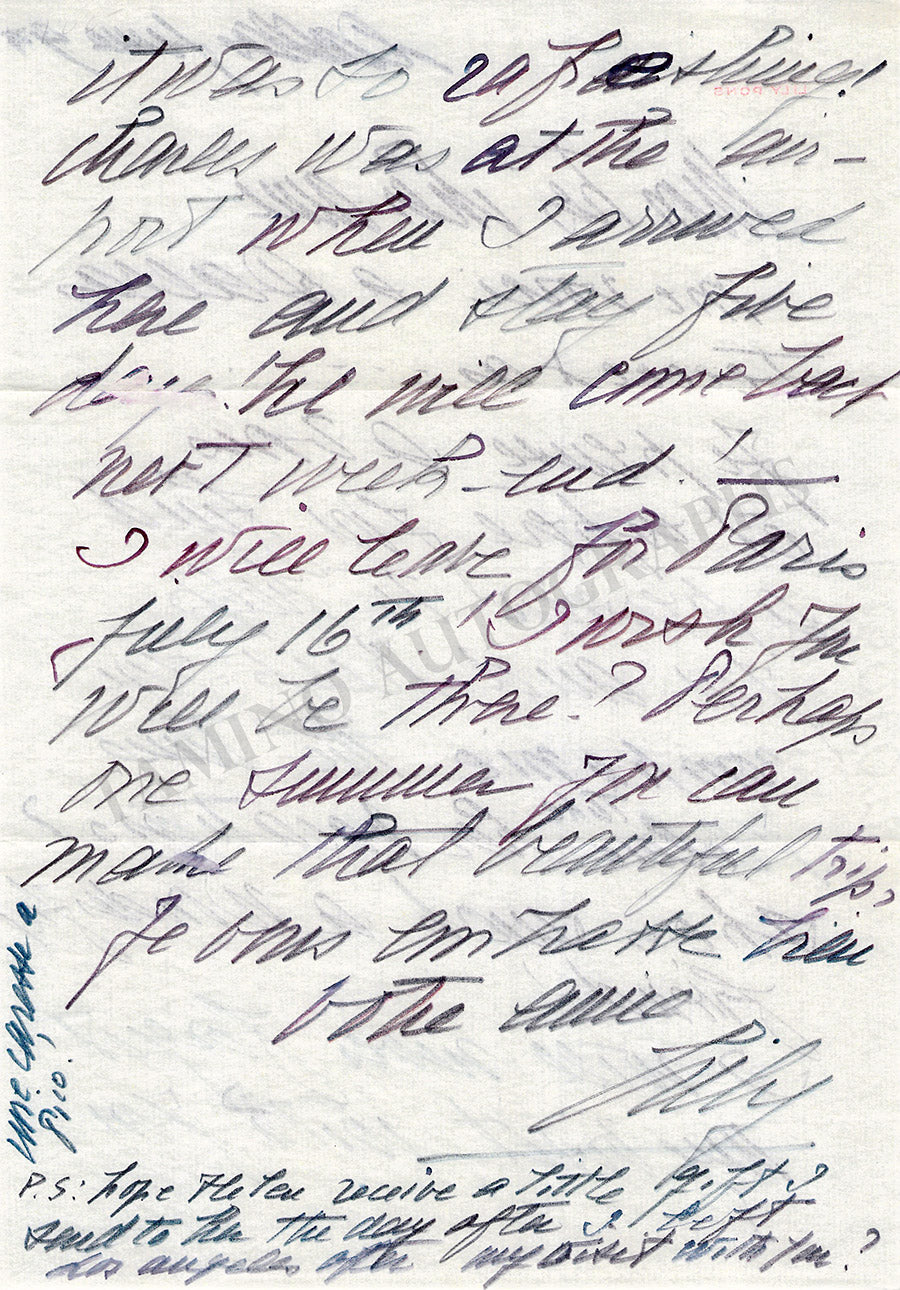 it was so rafreshing!
LILY PONS
charles was at the air-
port when I arrived
here and stay five
days! he will come back
next week-end.!
I will leave for Paris
July 16th! I wish you
will be there? Perhaps
one summer you can
make that beautiful trip,
Je vous embrasse bien
votre amie
Lily
une caresse a
Pico.
P.S: hope Helen receive a little gift I
send to her the day after I left
Los angeles after my visit with you?
TAMINO AUTOGRAPHS